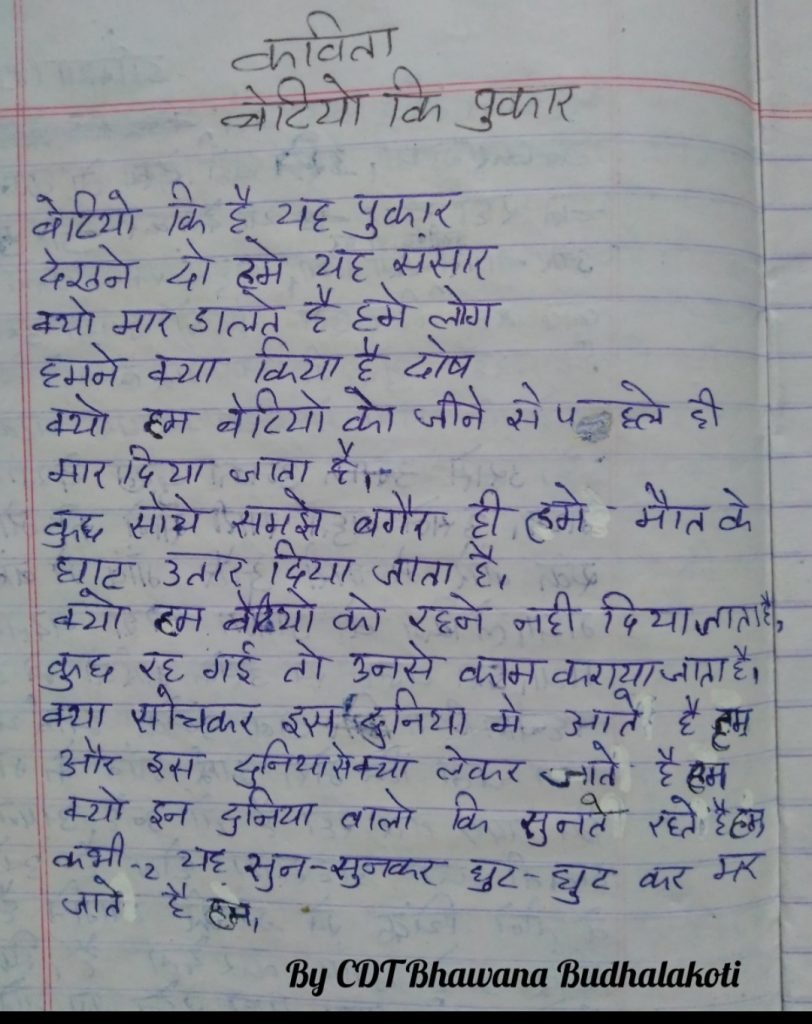 कविता
बेटियो कि पुकार
बेटियो कि है यह पुकार
देखने दो हमे यह संसार
क्यो मार डालते है हमे लोग
हमने क्या किया है दोष
क्यो हम बेटियो को जीने से पहले ही
मार दिया जाता है,
कुछ सोचे समझे बगैर ही हमे मौत के
घाट उतार दिया जाता है,
क्यो हम बेटियो को रहने नही दिया जाता है,
कुछ रह गई तो उनसे काम कराया जाता है,
क्या सोचकर इस दुनिया मे आते है हम
और इस दुनिया से क्या लेकर जाते है हम
क्यो इन दुनिया वालो कि सुनते रहते है हम
कभी-2 यह सुन-सुनकर घुट-घुट कर मर
जाते है हम,
By CDT Bhawana Budhalakoti